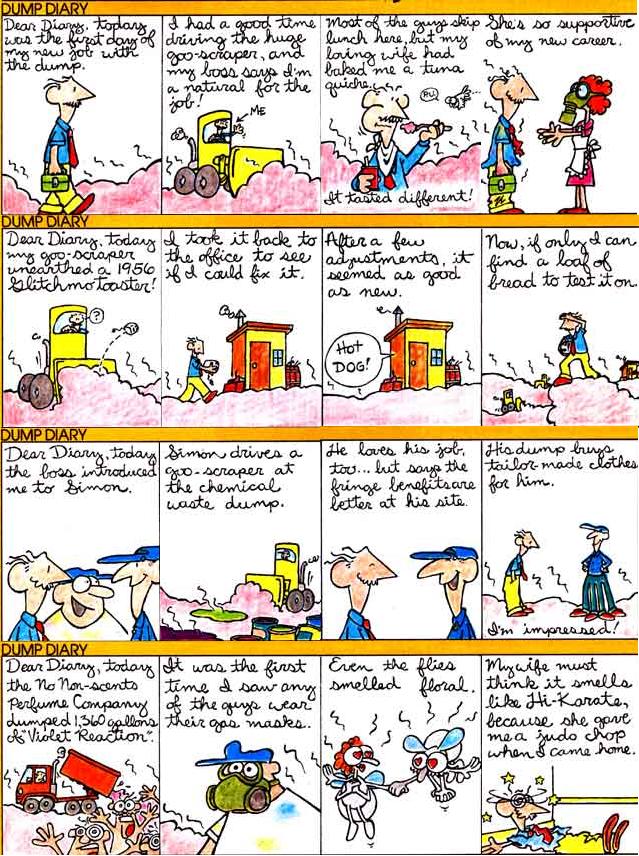 DUMP DIARY
Dear Diary, today
was the first day of
my new job with
the dump.
I had a good time
driving the huge
goo-scraper, and
my boss says I'm
a natural for the
job!
ME
Most of the guys skip
lunch here, but my
loving wife had
baked me a tuna
quiche.
P.U.
It tasted different!
She's so supportive
of my new career.
DUMP DIARY
Dear Diary, today
my goo-scraper
unearthed a 1956
Glitchmo Toaster!
?
I took it back to
the office to see
if I could fix it.
After a few
adjustments, it
seemed as good
as new.
HOT
DOG!
Now, if only I can
find a loaf of
bread to test it on.
DUMP DIARY
Dear Diary, today
the boss introduced
me to Simon.
Simon drives a
goo-scraper at
the chemical
waste dump.
He loves his job,
too... but says the
fringe benefits are
better at his site.
His dump buys
tailor made clothes
for him.
I'm impressed!
DUMP DIARY
Dear Diary, today
the No Non-scents
Perfume Company
dumped 1,360 gallons
of "Violet Reaction".
It was the first
time I saw any
of the guys wear
their gas masks.
Even the flies
smelled floral.
My wife must
think it smells
like Hi-Karate,
because she gave
me a judo chop
when I came home.